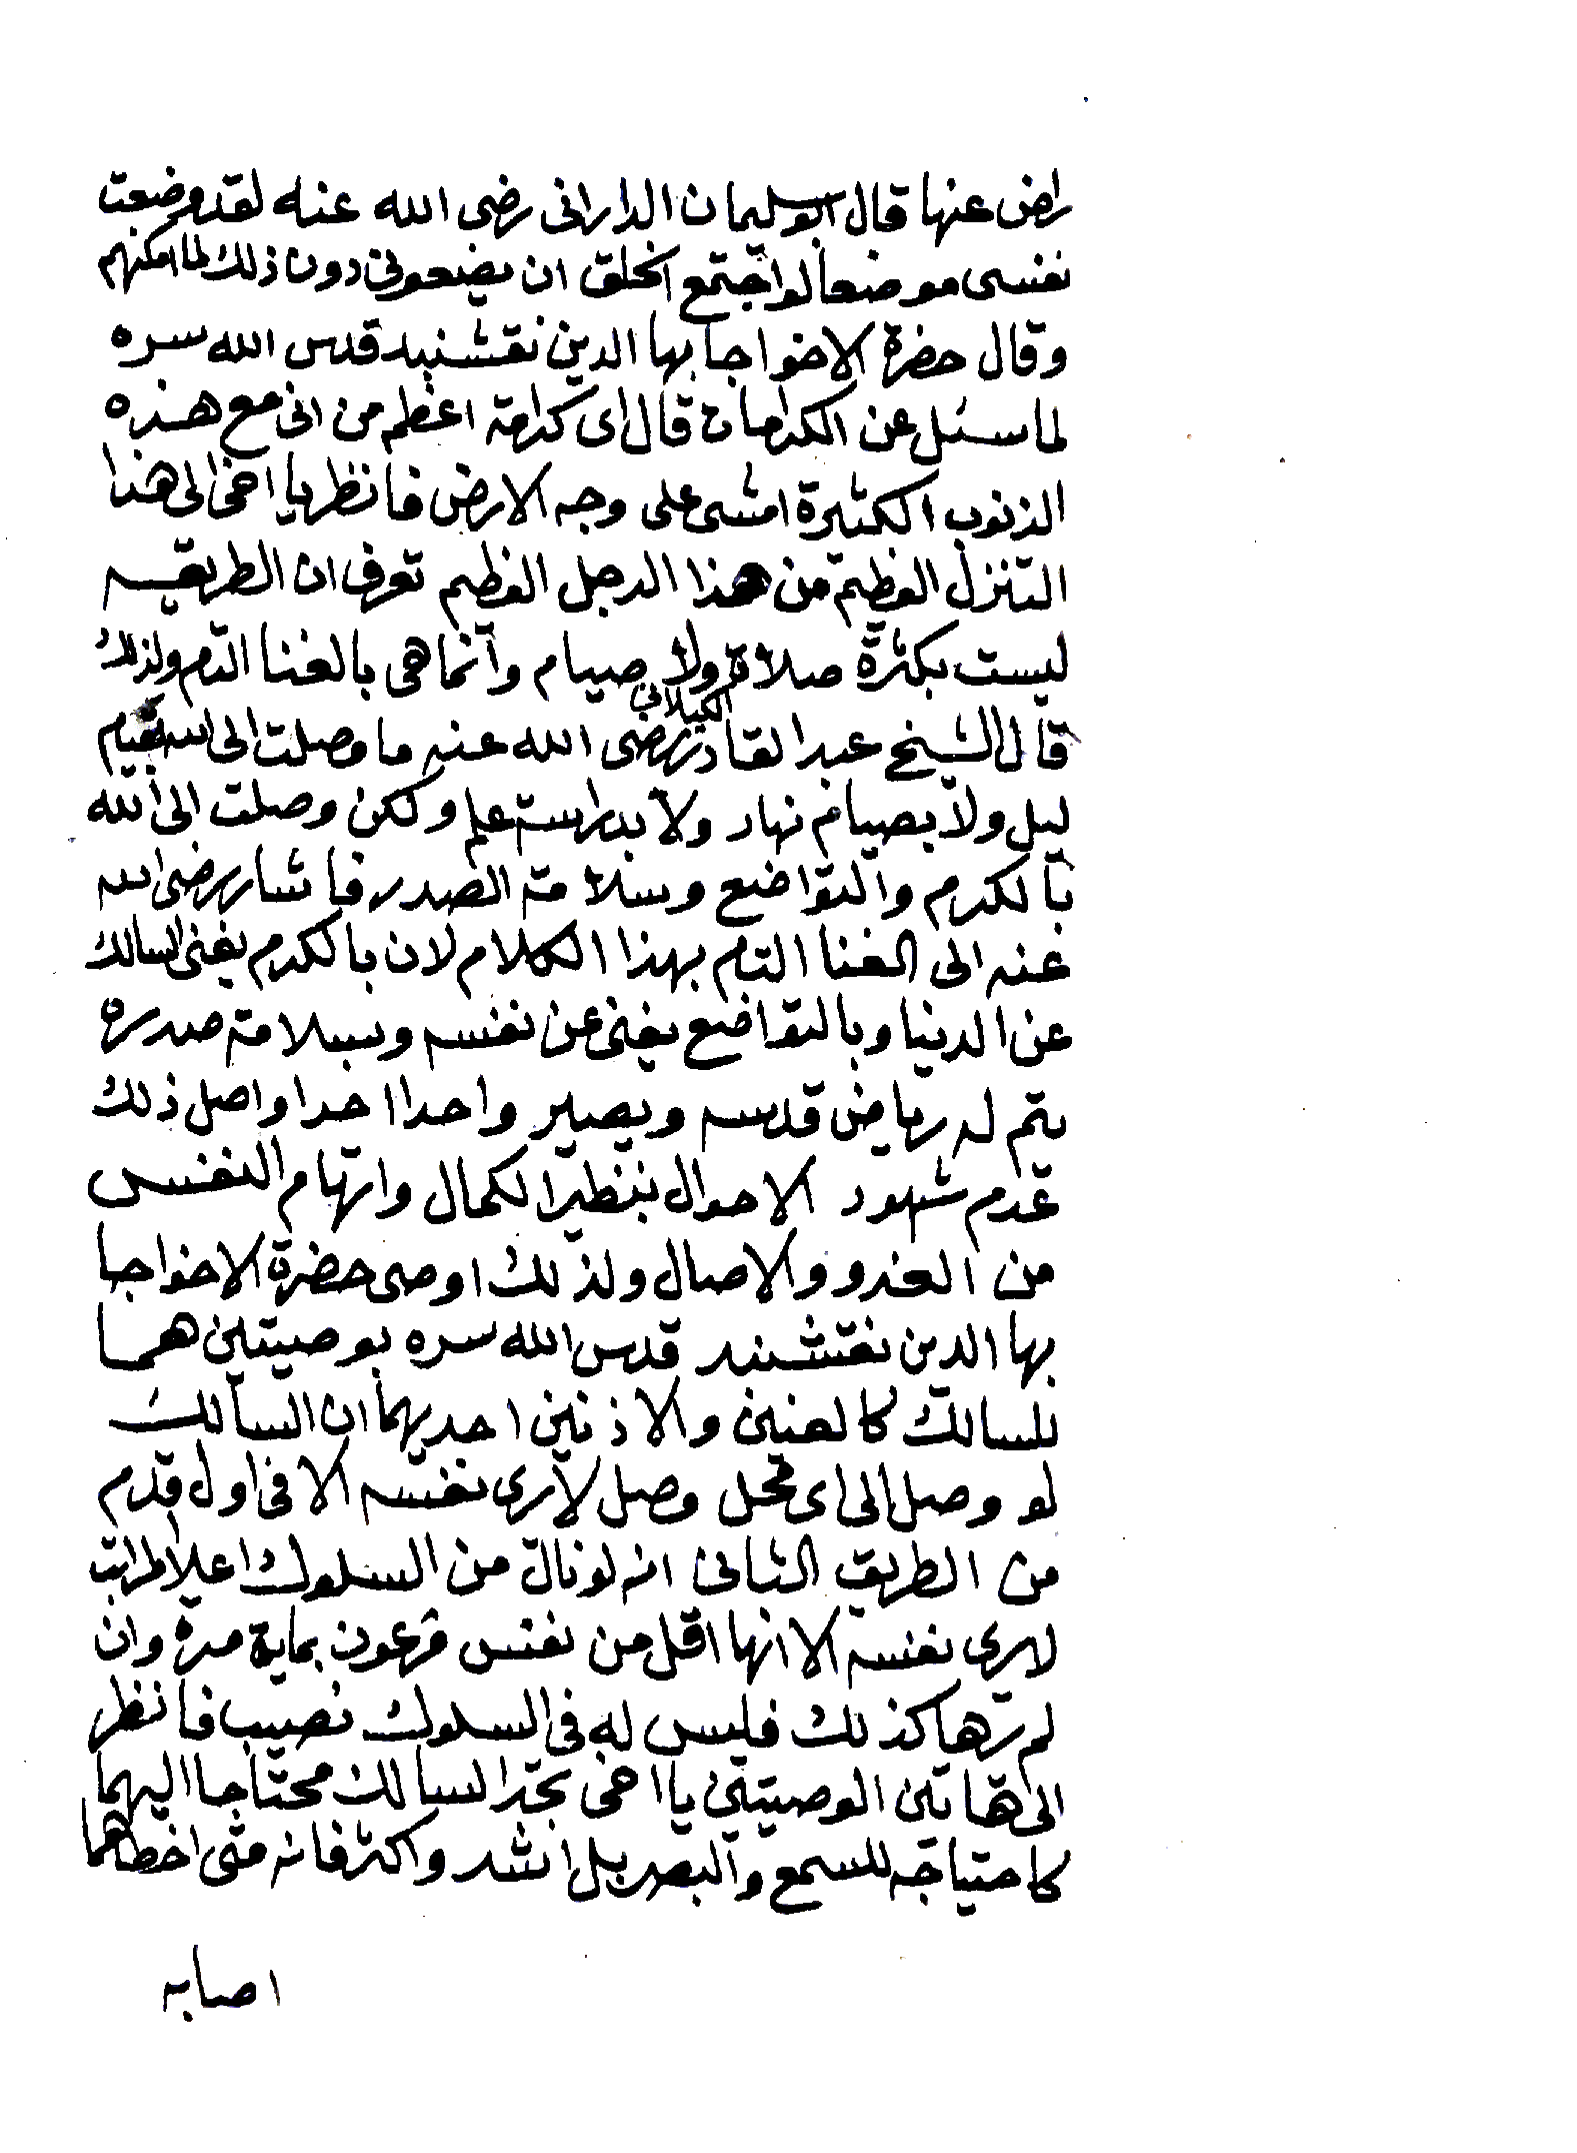 راض عنها قال ابو سليمان الداراني رضى الله عنه لقد وضعت
نفسى موضعا لو اجتمع الخلق ان يضعونى دون ذلك لما امكنهم
وقال حضرة الاخواجا بها الدين نقشنبد قدس الله سره
لما سئل عن الكرامات قال اى كرامة اعظم من انى مع هذه
الذنوب الكثيرة امشى على وجه الارض فانظر يا اخى الى هذا
التنزل العظيم من هذا الرجل العظيم تعرف ان الطريقه
ليست بكثرة صلاة ولا صيام وانما هى بالفنا التام ولذلك
قال الشيخ عبد القادر الكيلانى رضى الله عنه ما وصلت الى الله بقيام
ليل ولا بصيام نهار ولا بدراسة علم ولكن وصلت الى الله
بالكرم والتواضع وسلامة الصدر فاشار رضى الله
عنه الى الفنا التام بهذا الكلام لان بالكرم يفنى السالك
عن الدنيا وبالتواضع يفنى عن نفسه وبسلامة صدره
يتم له رياض قدسه ويصير واحدا احدا واصل ذلك
عدم شهود الاحوال بنظير الكمال واتهام النفس
من الغدو والاصال ولذلك اوصى حضرة الاخواجا
بها الدين نقشبند قدس الله سره بوصيتين هما
للسالك كالعنين والاذنين احديهما ان السالك
لو وصل الى اى محل وصل لا يرى نفسه الا فى اول قدم
من الطريق الثانى انه لو نال من السلوك اعلا المراتب
لا يرى نفسه الا انها اقل من نفس فرعون بماية مرة وان
لم يرها كذلك فليس له فى السلوك نصيب فانظر
الى هاتين الوصيتين يا اخى تجد السالك محتاجا اليهما
كاحتياجه للسمع والبصر بل اشد واكثر فانه متى اخطاهما
اصابه